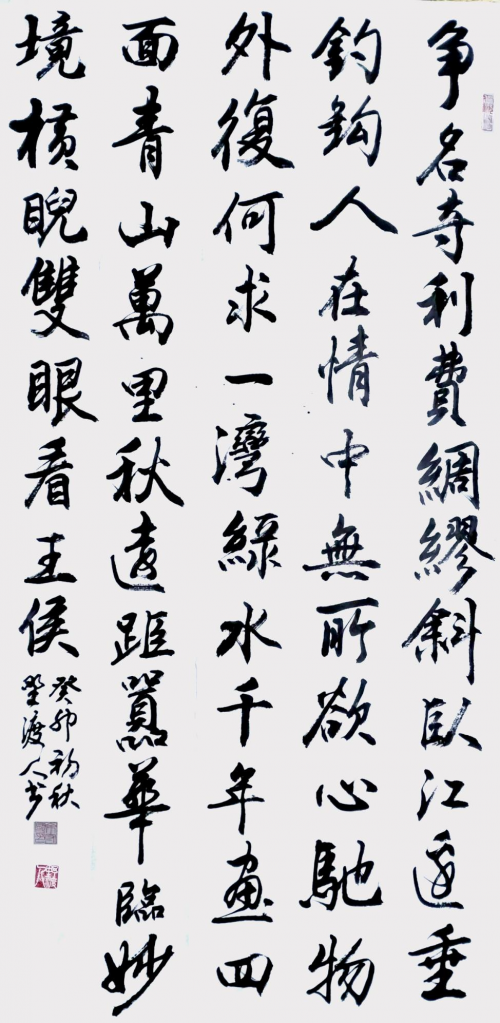 争名夺利費綢繆斜臥江邊垂
釣鈎人在情中無所欲心馳物
外復何求一灣綠水千年畫四
面青山萬里秋遠距囂華臨妙
境橫睨雙眼看王侯
癸卯初秋
埜渡人书